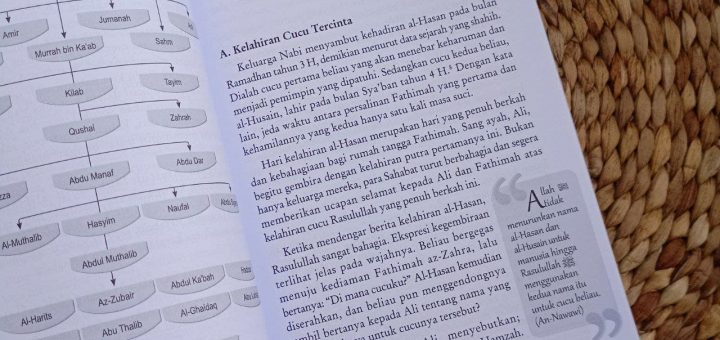 Amir
Jumanah
Murrah bin Ka'ab
Sahm
Kilab
Tayim
Qushai
Zahrah
Abdu Manaf
Abdu Dar
Hasyim
Naufal
Al-Muthalib
Abdul Muthalib
Az-Zubair
Abdul Ka'bah
Al-Harits
Abu Thalib
Al-Ghaidaq
A. Kelahiran Cucu Tercinta
Keluarga Nabi menyambut kehadiran al-Hasan pada bulan
Ramadhan tahun 3 H, demikian menurut data sejarah yang shahih.
Dialah cucu pertama beliau yang akan menebar keharuman dan
menjadi pemimpin yang dipatuhi. Sedangkan cucu kedua beliau,
al-Husain, lahir pada bulan Sya'ban tahun 4 H. Dengan kata
lain, jeda waktu antara persalinan Fathimah yang pertama dan
kehamilannya yang kedua hanya satu kali masa suci.
Hari kelahiran al-Hasan merupakan hari yang penuh berkah
dan kebahagiaan bagi rumah tangga Fathimah. Sang ayah, Ali,
begitu gembira dengan kelahiran putra pertamanya ini. Bukan
hanya keluarga mereka, para Sahabat turut berbahagia dan segera
memberikan ucapan selamat kepada Ali dan Fathimah atas
kelahiran cucu Rasulullah yang penuh berkah ini.
Ketika mendengar berita kelahiran al-Hasan,
Rasulullah sangat bahagia. Ekspresi kegembiraan
terlihat jelas pada wajahnya. Beliau bergegas
menuju kediaman Fathimah az-Zahra, lalu
bertanya: "Di mana cucuku?" Al-Hasan kemudian
diserahkan, dan beliau pun menggendongnya
bertanya kepada Ali tentang nama yang
untuk cucunya tersebut?
Ali menyebutkan;
Hamzah.
Allah ﷻ
tidak
menurunkan nama
al-Hasan dan
al-Husain untuk
manusia hingga
Rasulullah ﷺ
menggunakan
kedua nama itu
untuk cucu beliau.
(An-Nawawi)